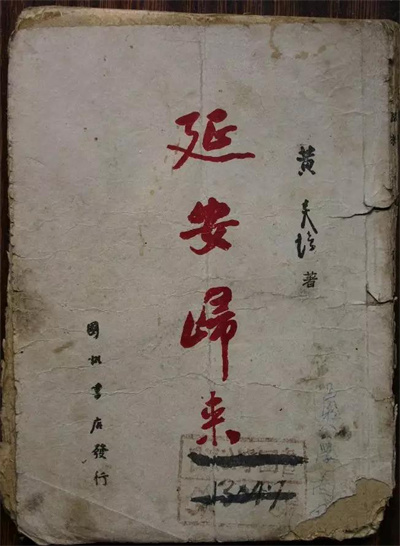 黄炎培著
延安歸來
國訊書店發行